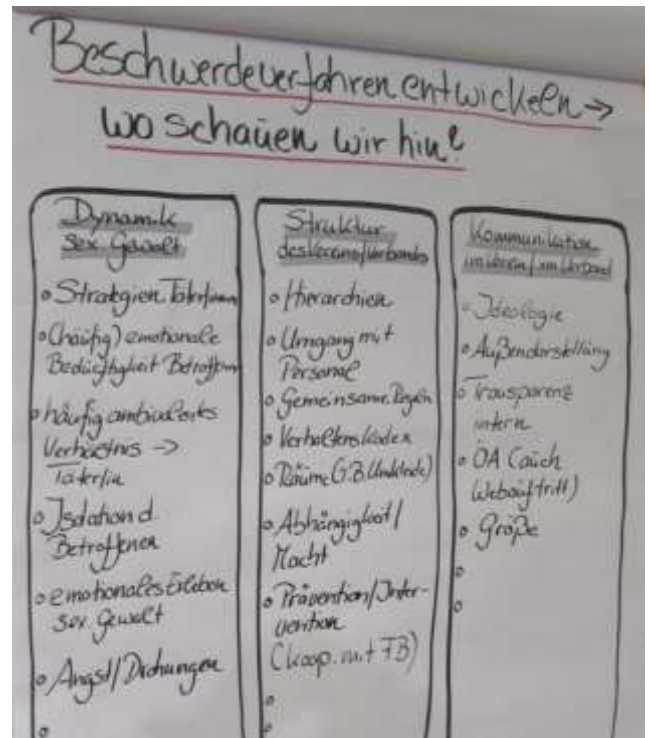 Beschwerdeverfahren entwickeln →
wo schauen wir hin?
Dynamik
sex. Gewalt
• Strategien Täter/innen
• (häufig) emotionale
Bedürftigkeit Betroffene
• häufig ambivalentes
Verhältnis →
Täter/in
• Isolation d.
Betroffenen
• emotionales Erleben
sex. Gewalt
• Angst/Drohungen
•
Struktur
des Vereins/Verbandes
• Hierarchien
• Umgang mit
Personal
• Gemeinsame Regeln
• Verhaltenskodex
• Räume (z.B. Umkleide)
• Abhängigkeit/
Macht
• Prävention/Inter-
vention
(koop. mit FB)
•
•
Kommunikation
im Verein/im Verband
• Ideologie
• Außendarstellung
• Transparenz
intern
• ÖA (auch
Webauftritt)
• Größe
•
•